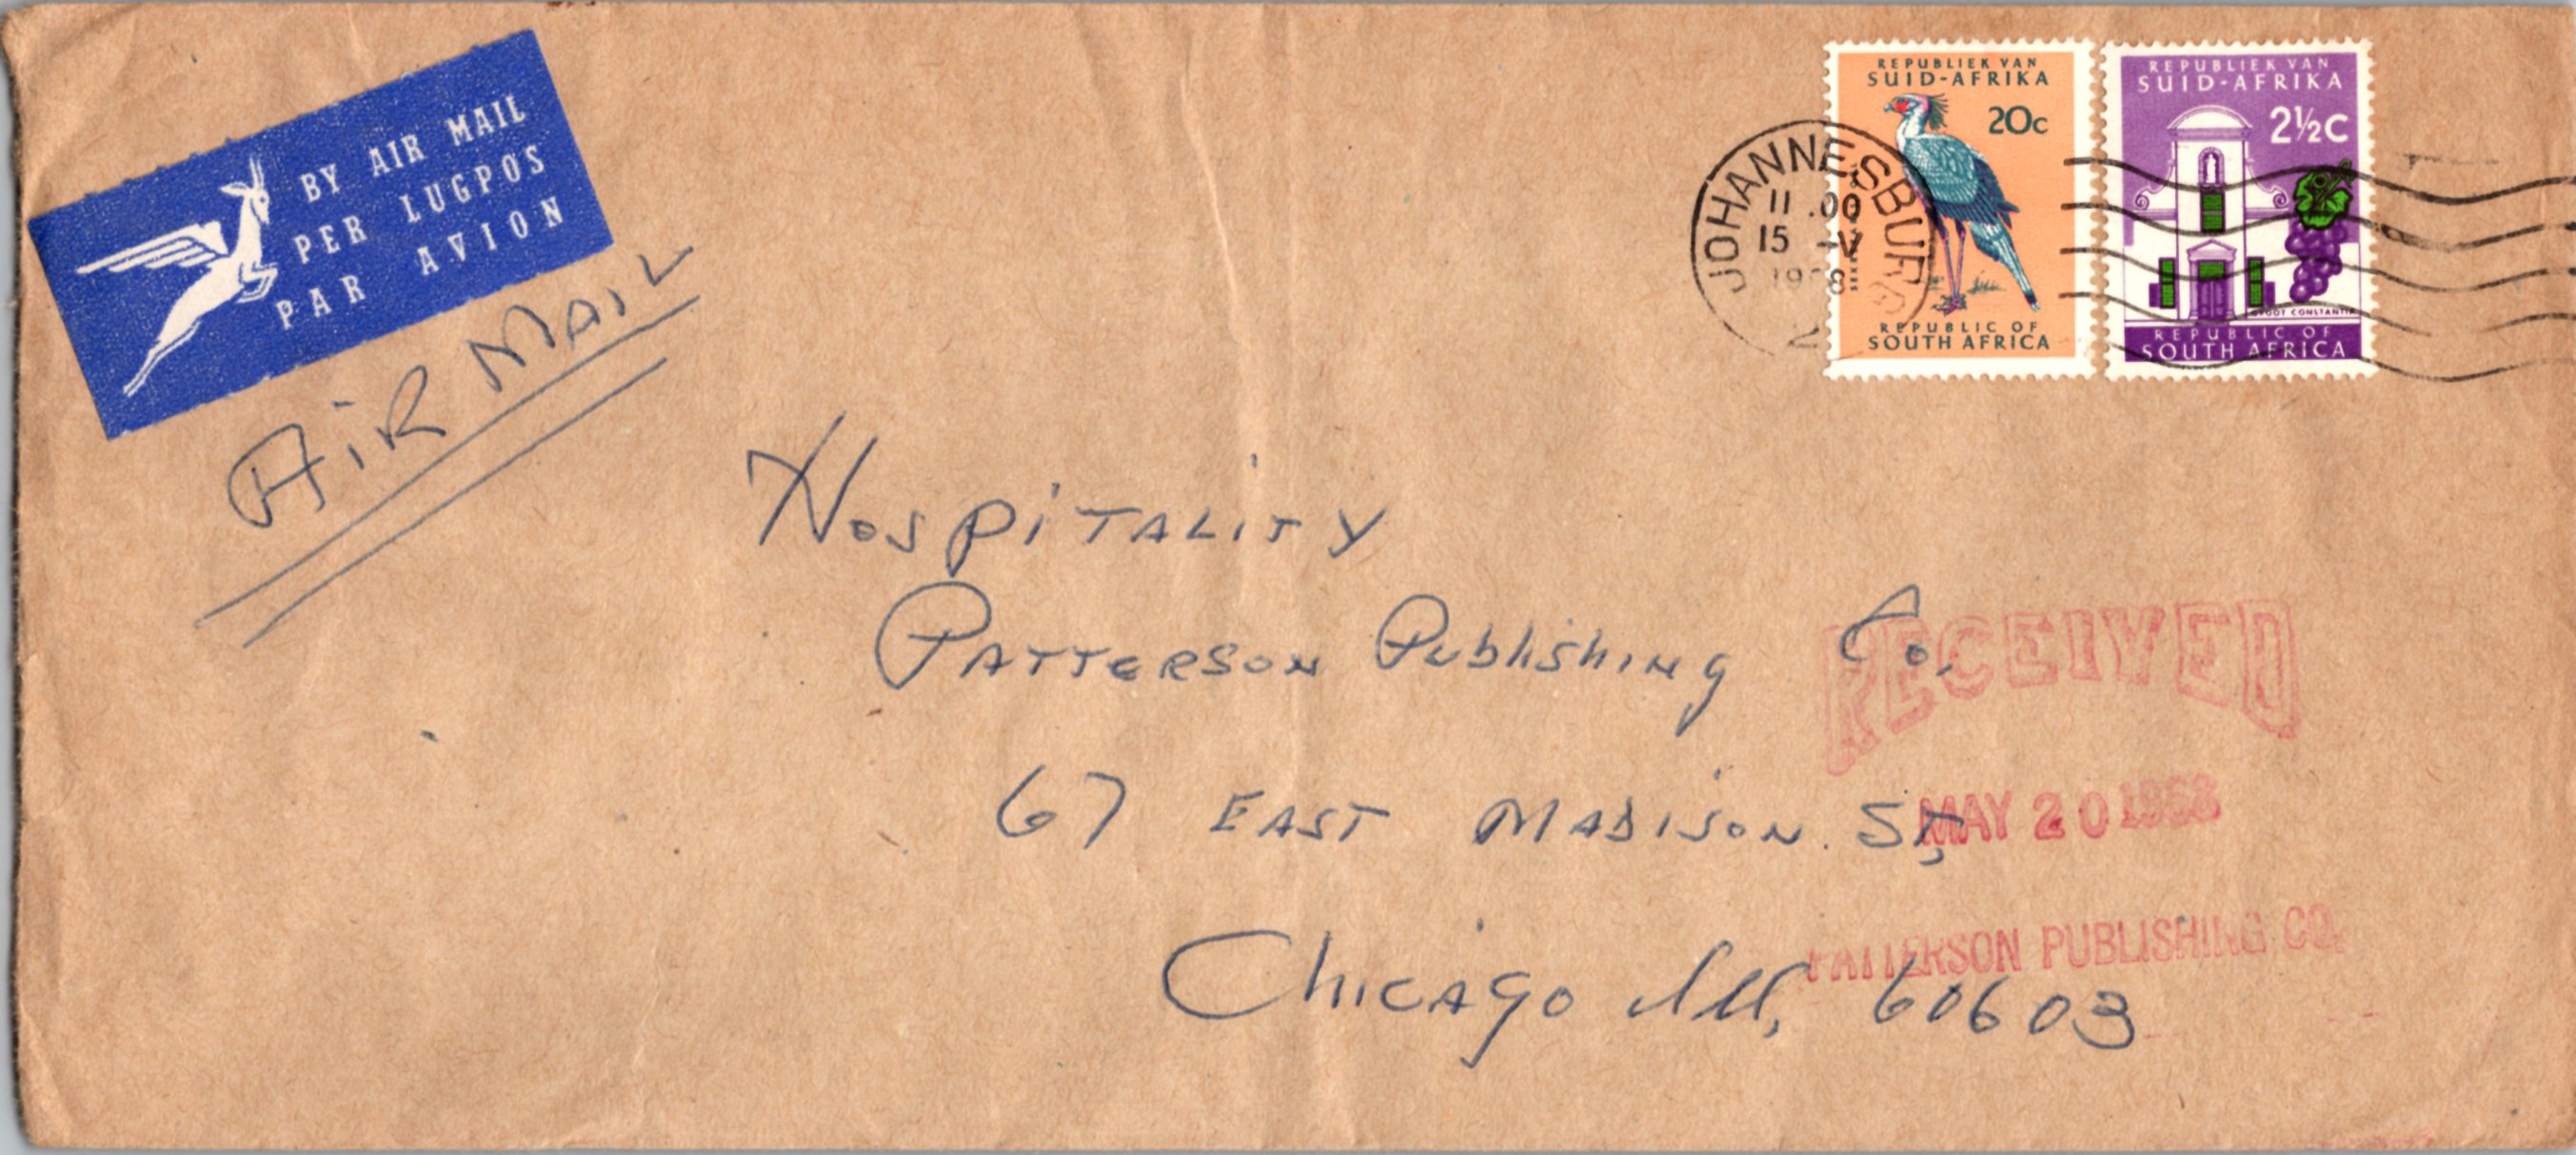 BY AIR MAIL
PER LUGPOS
PAR AVION
AIR MAIL
REPUBLIEK VAN
SUID-AFRIKA
20c
REPUBLIC OF
SOUTH AFRICA
REPUBLIEK VAN
SUID-AFRIKA
2½c
GROOT CONSTANTIA
REPUBLIC OF
SOUTH AFRICA
JOHANNESBURG
11.00
15 -V
Hospitality
Patterson Publishing Co.
67 East Madison St,
Chicago Ill, 60603
RECEIVED
MAY 20 1968
PATTERSON PUBLISHING CO.